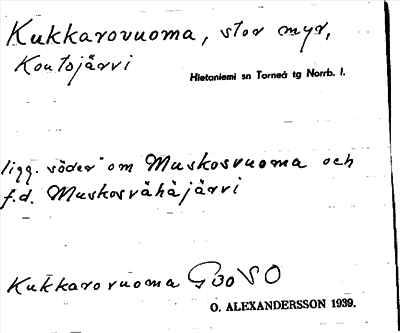 Kukkarovuoma, stor myr,
Koutojärvi
Hietaniemi sn Torneå tg Norrb. l.
ligg. söder om Muskosvuoma och
f.d. Muskosvähäjärvi
Kukkarovuoma G30 V O
O. ALEXANDERSSON 1939.